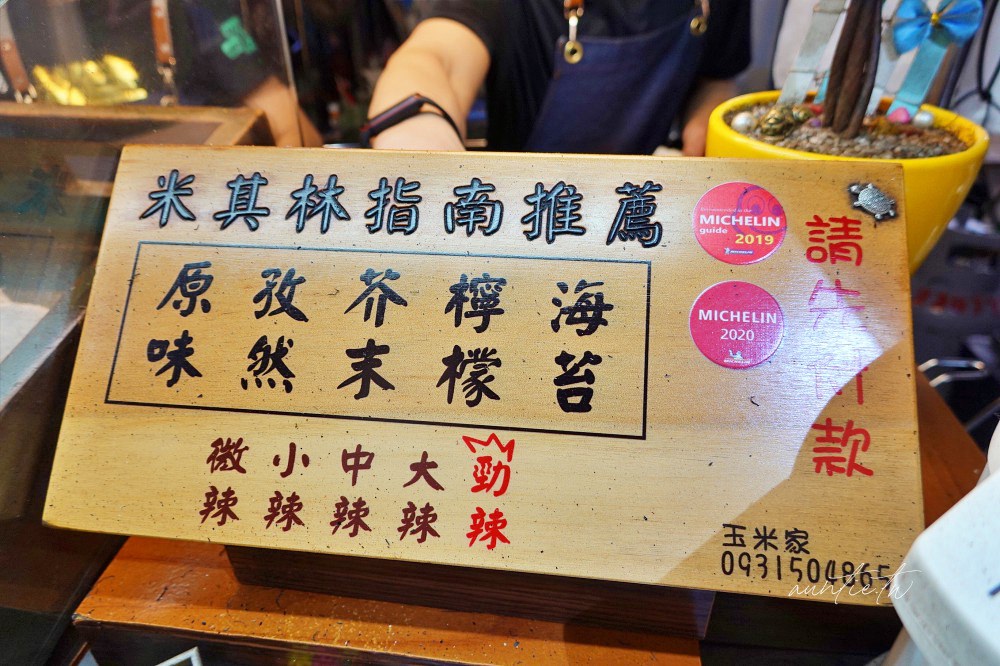 米其林指南推薦
原味 孜然 芥末 檸檬 海苔
微辣 小辣 中辣 大辣 勁辣
MICHELIN
guide 2019
MICHELIN
2020
請先付款
玉米家
0931504865
auntie.th